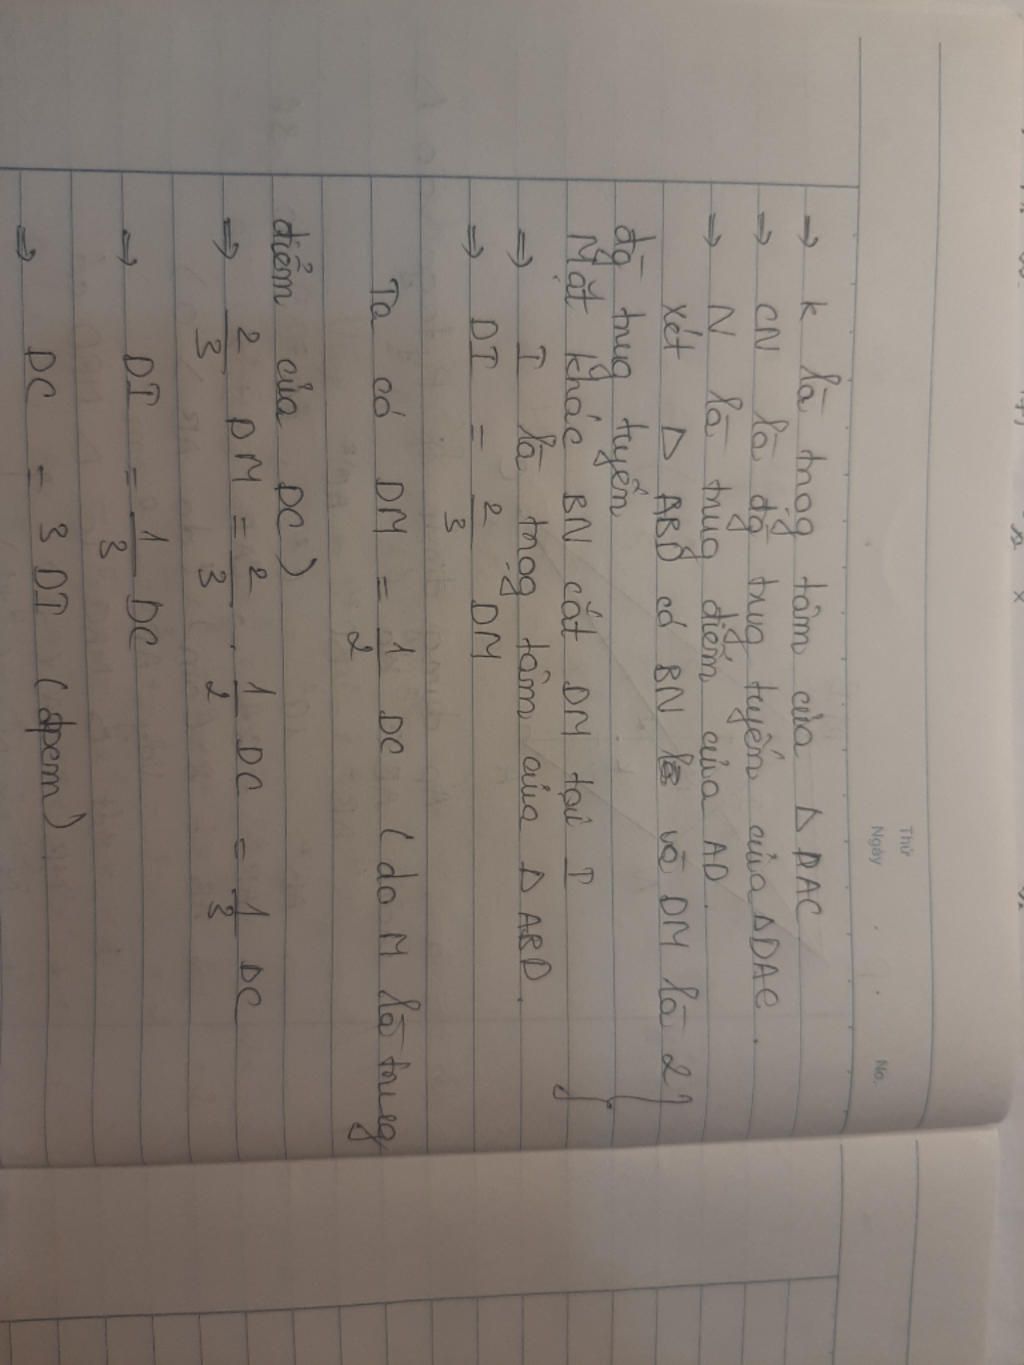 Thứ
Ngày No.
⇒ K là trọg tâm của Δ DAC
⇒ CN là đg trug tuyến của Δ DAC.
⇒ N là trug điểm của AD.
Xét Δ ABD có BN và DM là 2
đg trug tuyến
Mặt khác BN cắt DM tại I
⇒ I là trọg tâm của Δ ABD.
⇒ DI = 2/3 DM
Ta có DM = 1/2 DC (do M là trug
điểm của DC)
⇒ 2/3 DM = 2/3 . 1/2 DC = 1/3 DC
⇒ DI = 1/3 DC
⇒ DC = 3 DI (đpcm)